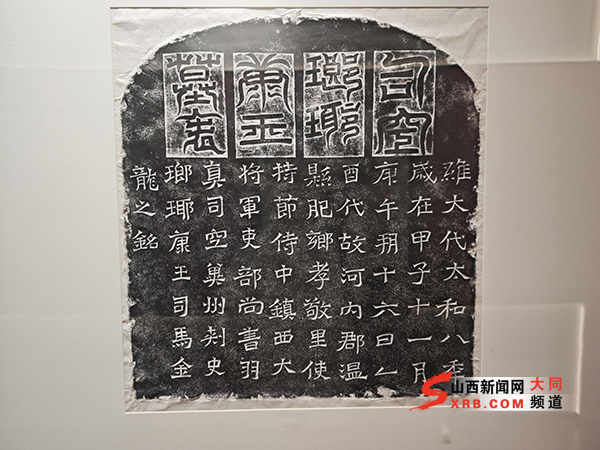 司空
瑯瑘
康王
墓表
維大代太和八年
歲在甲子十一月
庚午朔十六日乙
酉代故河内郡溫
縣肥鄉孝敬里使
持節侍中鎮西大
將軍吏部尚書羽
真司空冀州刺史
瑯瑘康王司馬金
龍之銘
山西新闻网 大同
SXRB.COM 频道